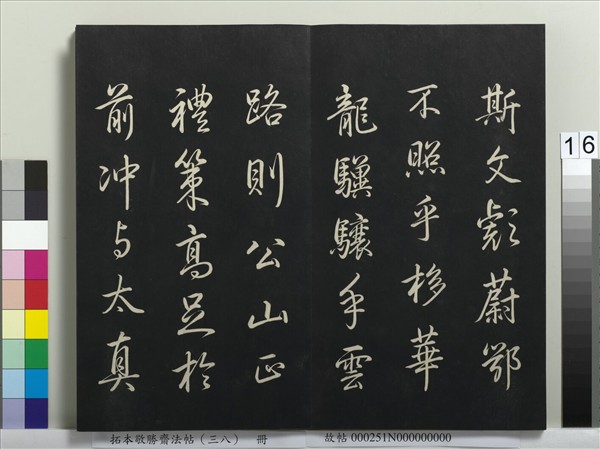 斯文彪蔚鄂
不照乎棣華
龍驥驤乎雲
路則公山正
禮策高足於
前冲与太真
16
拓本敬勝齋法帖（三八） 冊
故帖 000251N000000000